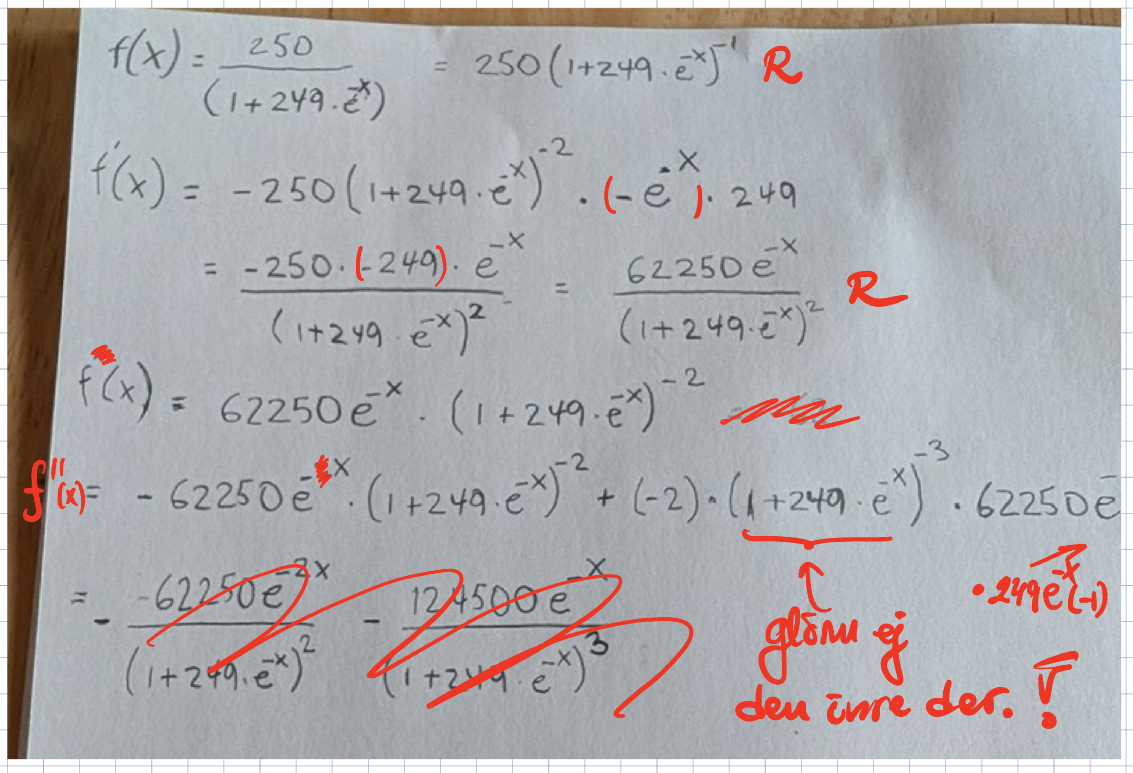 f(x) = 250 / (1+249·e^-x) = 250(1+249·e^-x)^-1 R
f'(x) = -250(1+249·e^-x)^-2 · (-e^-x)· 249
= -250·(-249)· e^-x / (1+249·e^-x)^2 = 62250e^-x / (1+249·e^-x)^2 R
f'(x) = 62250e^-x · (1+249·e^-x)^-2
f''(x) = -62250e^-x · (1+249·e^-x)^-2 + (-2)·(1+249·e^-x)^-3 · 62250e^-x
·249e^-x(-1)
= - -62250e^-2x / (1+249·e^-x)^2 - 124500e^-x / (1+249·e^-x)^3
glöm ej
den inre der. !